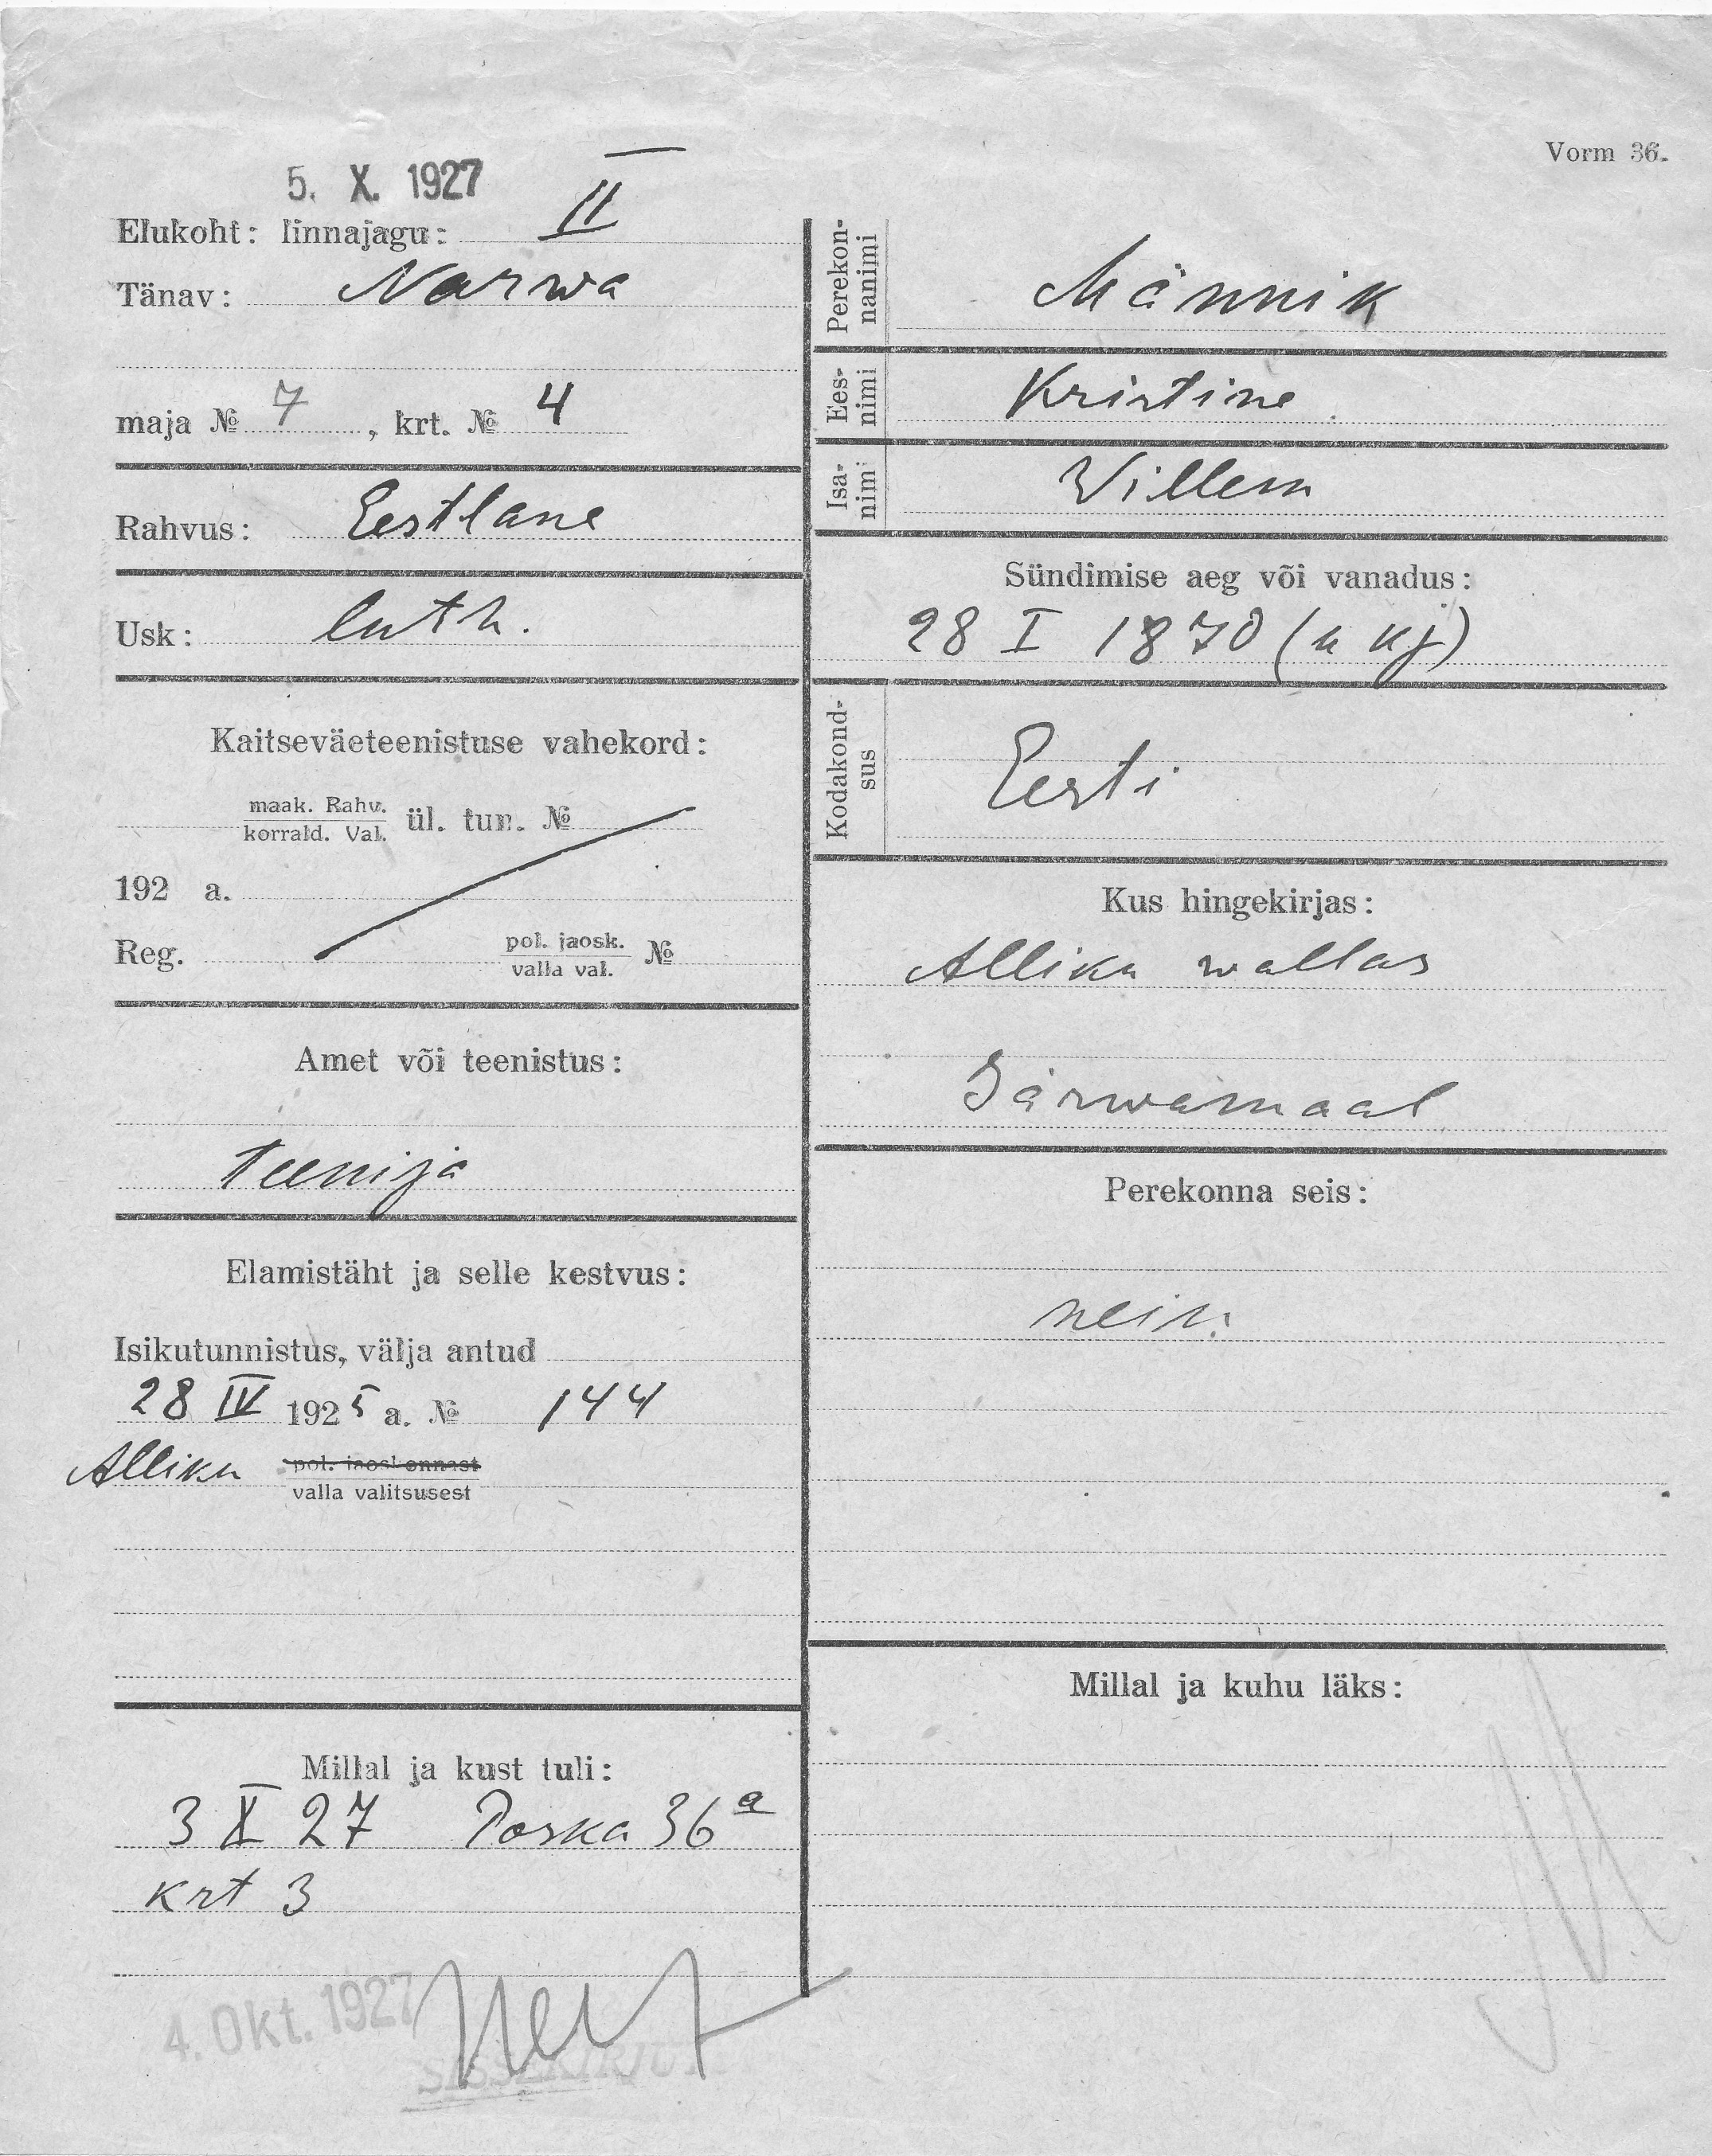 Vorm 36.
5. X. 1927
Elukoht: linnajagu: II
Tänav: Narwa
maja № 7, krt. № 4
Rahvus: Eestlane
Usk: luth.
Kaitseväeteenistuse vahekord:
maak. Rahv.
korrald. Val. ül. tun. №
192 a.
Reg. pol. jaosk.
valla val. №
Amet või teenistus:
teenija
Elamistäht ja selle kestvus:
Isikutunnistus, välja antud
28 IV 1925 a. № 144
Alliku pol. jaoskonnast
valla valitsusest
Millal ja kust tuli:
3 X 27 Poska 36a
krt 3
4. Okt. 1927
SISSEKIRJUT
Perekon-
nanimi
Männik
Ees-
nimi
Kristine
Isa-
nimi
Willem
Sündimise aeg või vanadus:
28 I 1870 (u kj)
Kodakond-
sus
Eesti
Kus hingekirjas:
Alliku wallas
Järwamaal
Perekonna seis:
neiu
Millal ja kuhu läks: